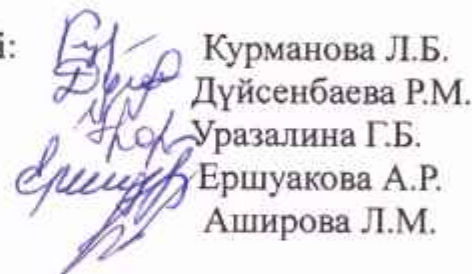 і: Курманова Л.Б.
Дүйсенбаева Р.М.
Уразалина Г.Б.
Ершуакова А.Р.
Аширова Л.М.